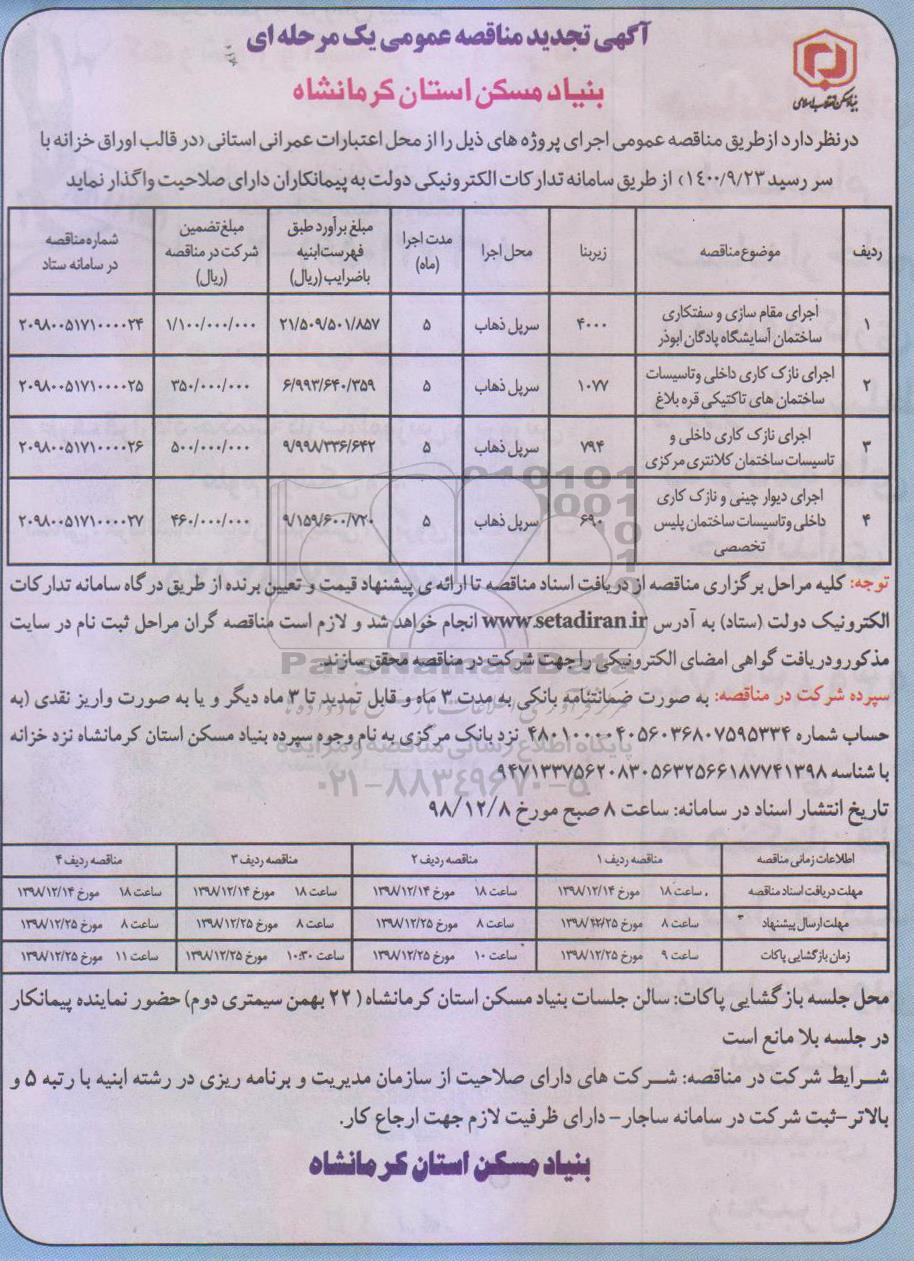 آگهی تجدید مناقصه عمومی یک مرحله ای
بنیاد مسکن استان کرمانشاه
بنیاد مسکن انقلاب اسلامی
درنظر دارد ازطریق مناقصه عمومی اجرای پروژه های ذیل را از محل اعتبارات عمرانی استانی (در قالب اوراق خزانه با
سر رسید ۱۴۰۰/۹/۲۳) از طریق سامانه تدارکات الکترونیکی دولت به پیمانکاران دارای صلاحیت واگذار نماید
ردیف موضوع مناقصه زیربنا محل اجرا مدت اجرا (ماه) مبلغ برآورد طبق فهرست ابنیه باضرایب (ریال) مبلغ تضمین شرکت در مناقصه (ریال) شماره مناقصه در سامانه ستاد
۱ اجرای مقام سازی و سفتکاری ساختمان آسایشگاه پادگان ابوذر ۴۰۰۰ سرپل ذهاب ۵ ۲۱/۵۰۹/۵۰۱/۸۵۷ ۱/۱۰۰/۰۰۰/۰۰۰ ۲۰۹۸۰۰۵۱۷۱۰۰۰۰۲۴
۲ اجرای نازک کاری داخلی وتاسیسات ساختمان های تاکتیکی قره بلاغ ۱۰۷۷ سرپل ذهاب ۵ ۶/۹۹۳/۶۴۰/۳۵۹ ۳۵۰/۰۰۰/۰۰۰ ۲۰۹۸۰۰۵۱۷۱۰۰۰۰۲۵
۳ اجرای نازک کاری داخلی و تاسیسات ساختمان کلانتری مرکزی ۷۹۴ سرپل ذهاب ۵ ۹/۹۹۸/۳۳۶/۶۴۲ ۵۰۰/۰۰۰/۰۰۰ ۲۰۹۸۰۰۵۱۷۱۰۰۰۰۲۶
۴ اجرای دیوار چینی و نازک کاری داخلی وتاسیسات ساختمان پلیس تخصصی ۶۹۰ سرپل ذهاب ۵ ۹/۱۵۹/۶۰۰/۷۲۰ ۴۶۰/۰۰۰/۰۰۰ ۲۰۹۸۰۰۵۱۷۱۰۰۰۰۲۷
توجه: کلیه مراحل برگزاری مناقصه از دریافت اسناد مناقصه تا ارائه ی پیشنهاد قیمت و تعیین برنده از طریق درگاه سامانه تدارکات
الکترونیک دولت (ستاد) به آدرس www.setadiran.ir انجام خواهد شد و لازم است مناقصه گران مراحل ثبت نام در سایت
مذکورودریافت گواهی امضای الکترونیکی را جهت شرکت در مناقصه محقق سازند.
ParsNamadData
سپرده شرکت در مناقصه: به صورت ضمانتنامه بانکی به مدت ۳ ماه و قابل تمدید تا ۳ ماه دیگر و یا به صورت واریز نقدی (به
حساب شماره ۴۸۰۱۰۰۰۰۴۰۵۶۰۳۶۸۰۷۵۹۵۳۳۴ نزد بانک مرکزی به نام وجوه سپرده بنیاد مسکن استان کرمانشاه نزد خزانه
پایگاه اطلاع رسانی مناقصه و مزایده
با شناسه ۹۴۷۱۳۳۷۵۶۲۰۸۳۰۵۶۳۲۵۶۶۱۸۷۷۴۱۳۹۸
۰۲۱-۸۸۳۴۹۶۷۰-۵
تاریخ انتشار اسناد در سامانه: ساعت ۸ صبح مورخ ۹۸/۱۲/۸
اطلاعات زمانی مناقصه مناقصه ردیف ۱ مناقصه ردیف ۲ مناقصه ردیف ۳ مناقصه ردیف ۴
مهلت دریافت اسناد مناقصه ساعت ۱۸ مورخ ۱۳۹۸/۱۲/۱۴ ساعت ۱۸ مورخ ۱۳۹۸/۱۲/۱۴ ساعت ۱۸ مورخ ۱۳۹۸/۱۲/۱۴ ساعت ۱۸ مورخ ۱۳۹۸/۱۲/۱۴
مهلت ارسال پیشنهاد ساعت ۸ مورخ ۱۳۹۸/۱۲/۲۵ ساعت ۸ مورخ ۱۳۹۸/۱۲/۲۵ ساعت ۸ مورخ ۱۳۹۸/۱۲/۲۵ ساعت ۸ مورخ ۱۳۹۸/۱۲/۲۵
زمان بازگشایی پاکات ساعت ۹ مورخ ۱۳۹۸/۱۲/۲۵ ساعت ۱۰ مورخ ۱۳۹۸/۱۲/۲۵ ساعت ۱۰:۳۰ مورخ ۱۳۹۸/۱۲/۲۵ ساعت ۱۱ مورخ ۱۳۹۸/۱۲/۲۵
محل جلسه بازگشایی پاکات: سالن جلسات بنیاد مسکن استان کرمانشاه (۲۲ بهمن سیمتری دوم) حضور نماینده پیمانکار
در جلسه بلا مانع است
شرایط شرکت در مناقصه: شرکت های دارای صلاحیت از سازمان مدیریت و برنامه ریزی در رشته ابنیه با رتبه ۵ و
بالاتر-ثبت شرکت در سامانه ساجار- دارای ظرفیت لازم جهت ارجاع کار.
بنیاد مسکن استان کرمانشاه